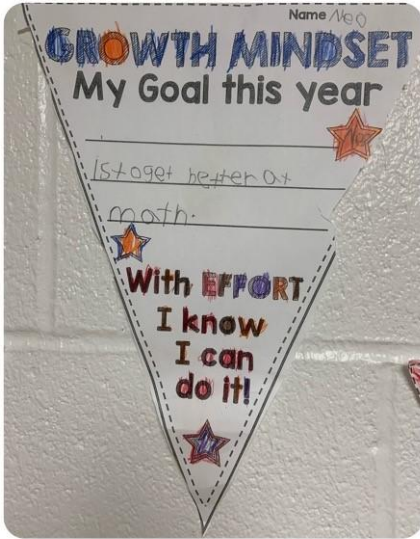 Name Neo
GROWTH MINDSET
My Goal this year
Is to get better at
math.
With EFFORT
I know
I can
do it!